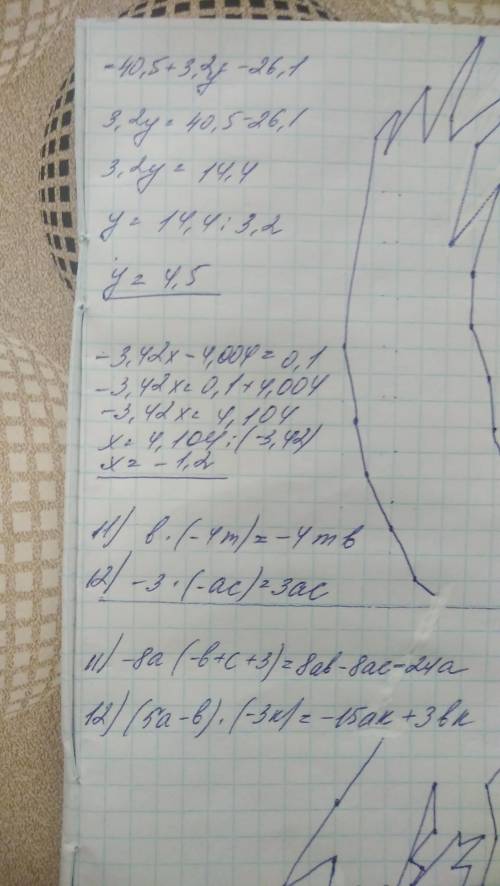 -40,5+3,2y-26,1
3,2y=40,5-26,1
3,2y= 14,4
y= 14,4:3,2
y= 4,5
-3,42x-4,004=0,1
-3,42x=0,1+4,004
-3,42x=4,104
x=4,104:(-3,42)
x=-1,2
11) в·(-4m)=-4mв
12) -3·(-ac)=3ac
11) -8a(-в+c+3)=8aв-8ac-24a
12) (5a-в)·(-3к)=-15aк+3вк